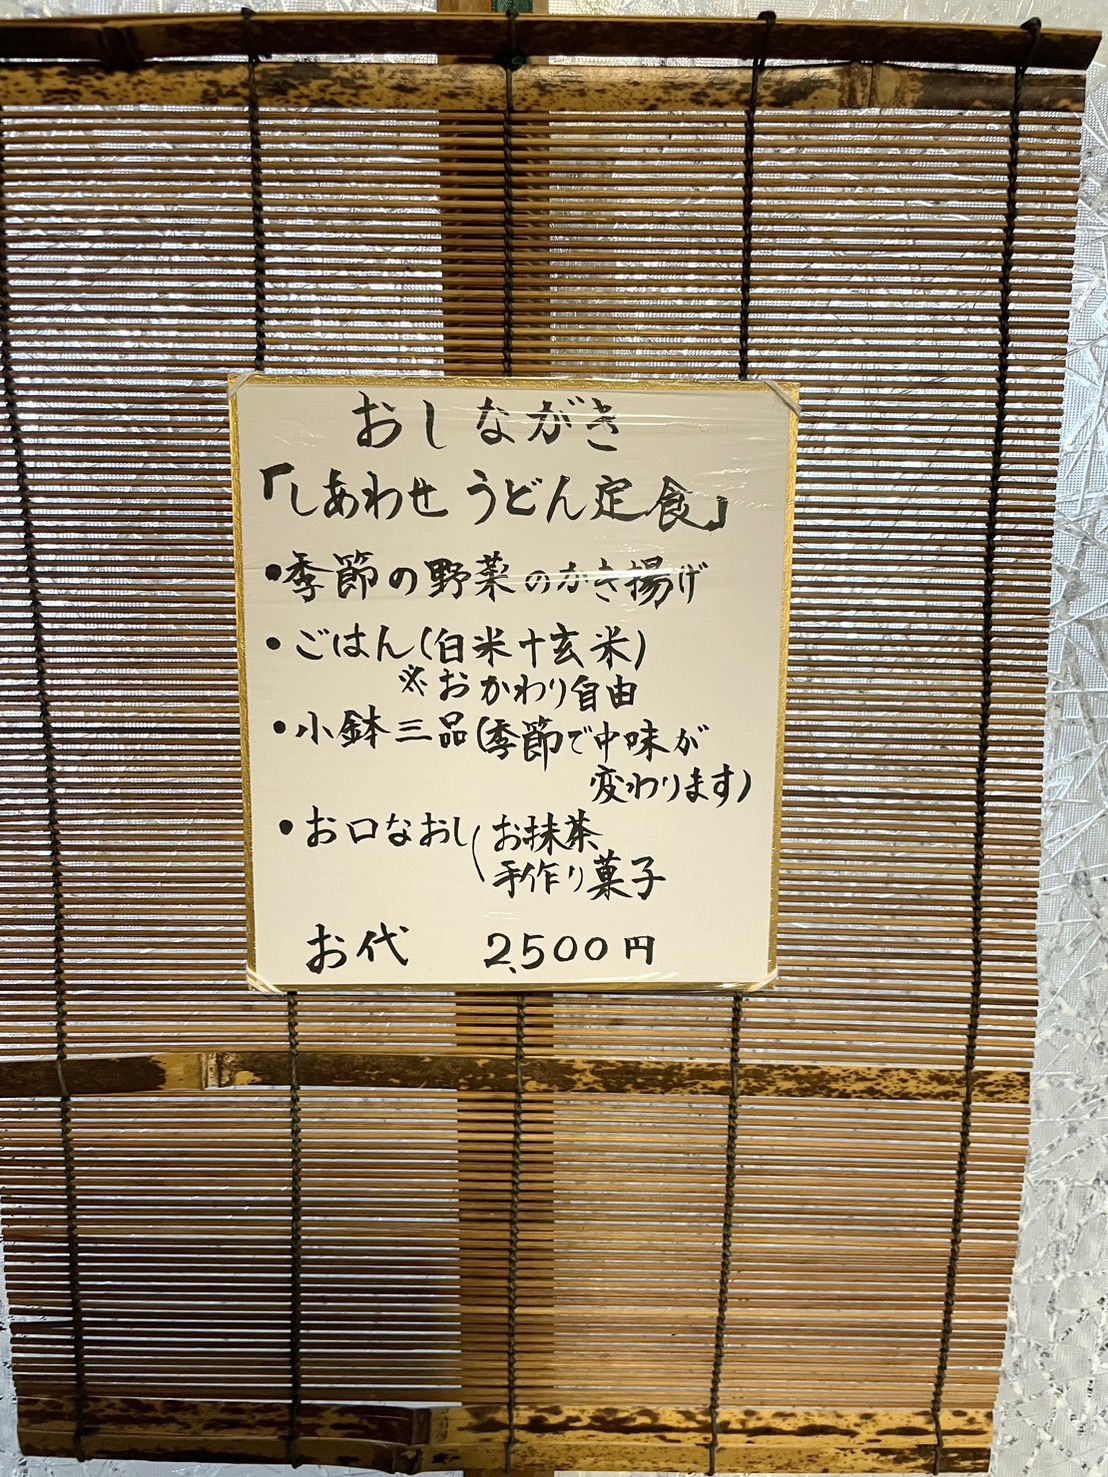 おしながき
「しあわせ うどん定食」
・季節の野菜のかき揚げ
・ごはん(白米+玄米)
※おかわり自由
・小鉢三品(季節で中味が
変わります)
・お口なおし(お抹茶
手作り菓子
お代 2,500円